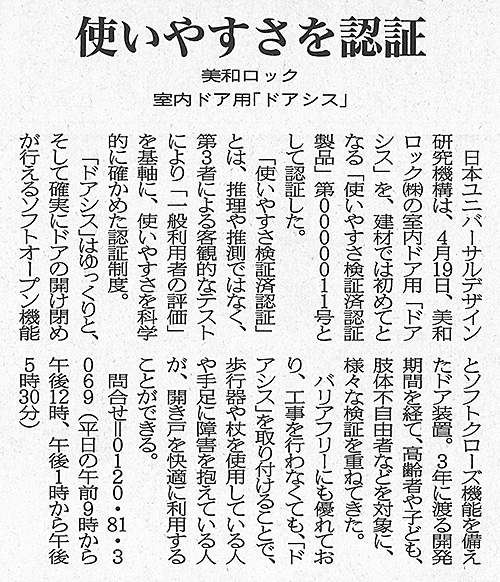 使いやすさを認証
美和ロック
室内ドア用「ドアシス」
日本ユニバーサルデザイン
研究機構は、4月19日、美和
ロック㈱の室内ドア用「ドア
シス」を、建材では初めてと
なる「使いやすさ検証済認証
製品」第0000011号と
して認証した。
「使いやすさ検証済認証」
とは、推理や推測ではなく、
第3者による客観的なテスト
により「一般利用者の評価」
を基軸に、使いやすさを科学
的に確かめた認証制度。
「ドアシス」はゆっくりと、
そして確実にドアの開け閉め
が行えるソフトオープン機能
とソフトクローズ機能を備え
たドア装置。3年に渡る開発
期間を経て、高齢者や子ども、
肢体不自由者などを対象に、
様々な検証を重ねてきた。
バリアフリーにも優れてお
り、工事を行わなくても、「ド
アシス」を取り付けることで、
歩行器や杖を使用している人
や手足に障害を抱えている人
が、開き戸を快適に利用する
ことができる。
問合せ＝0120・81・3
069（平日の午前9時から
午後12時、午後1時から午後
5時30分）